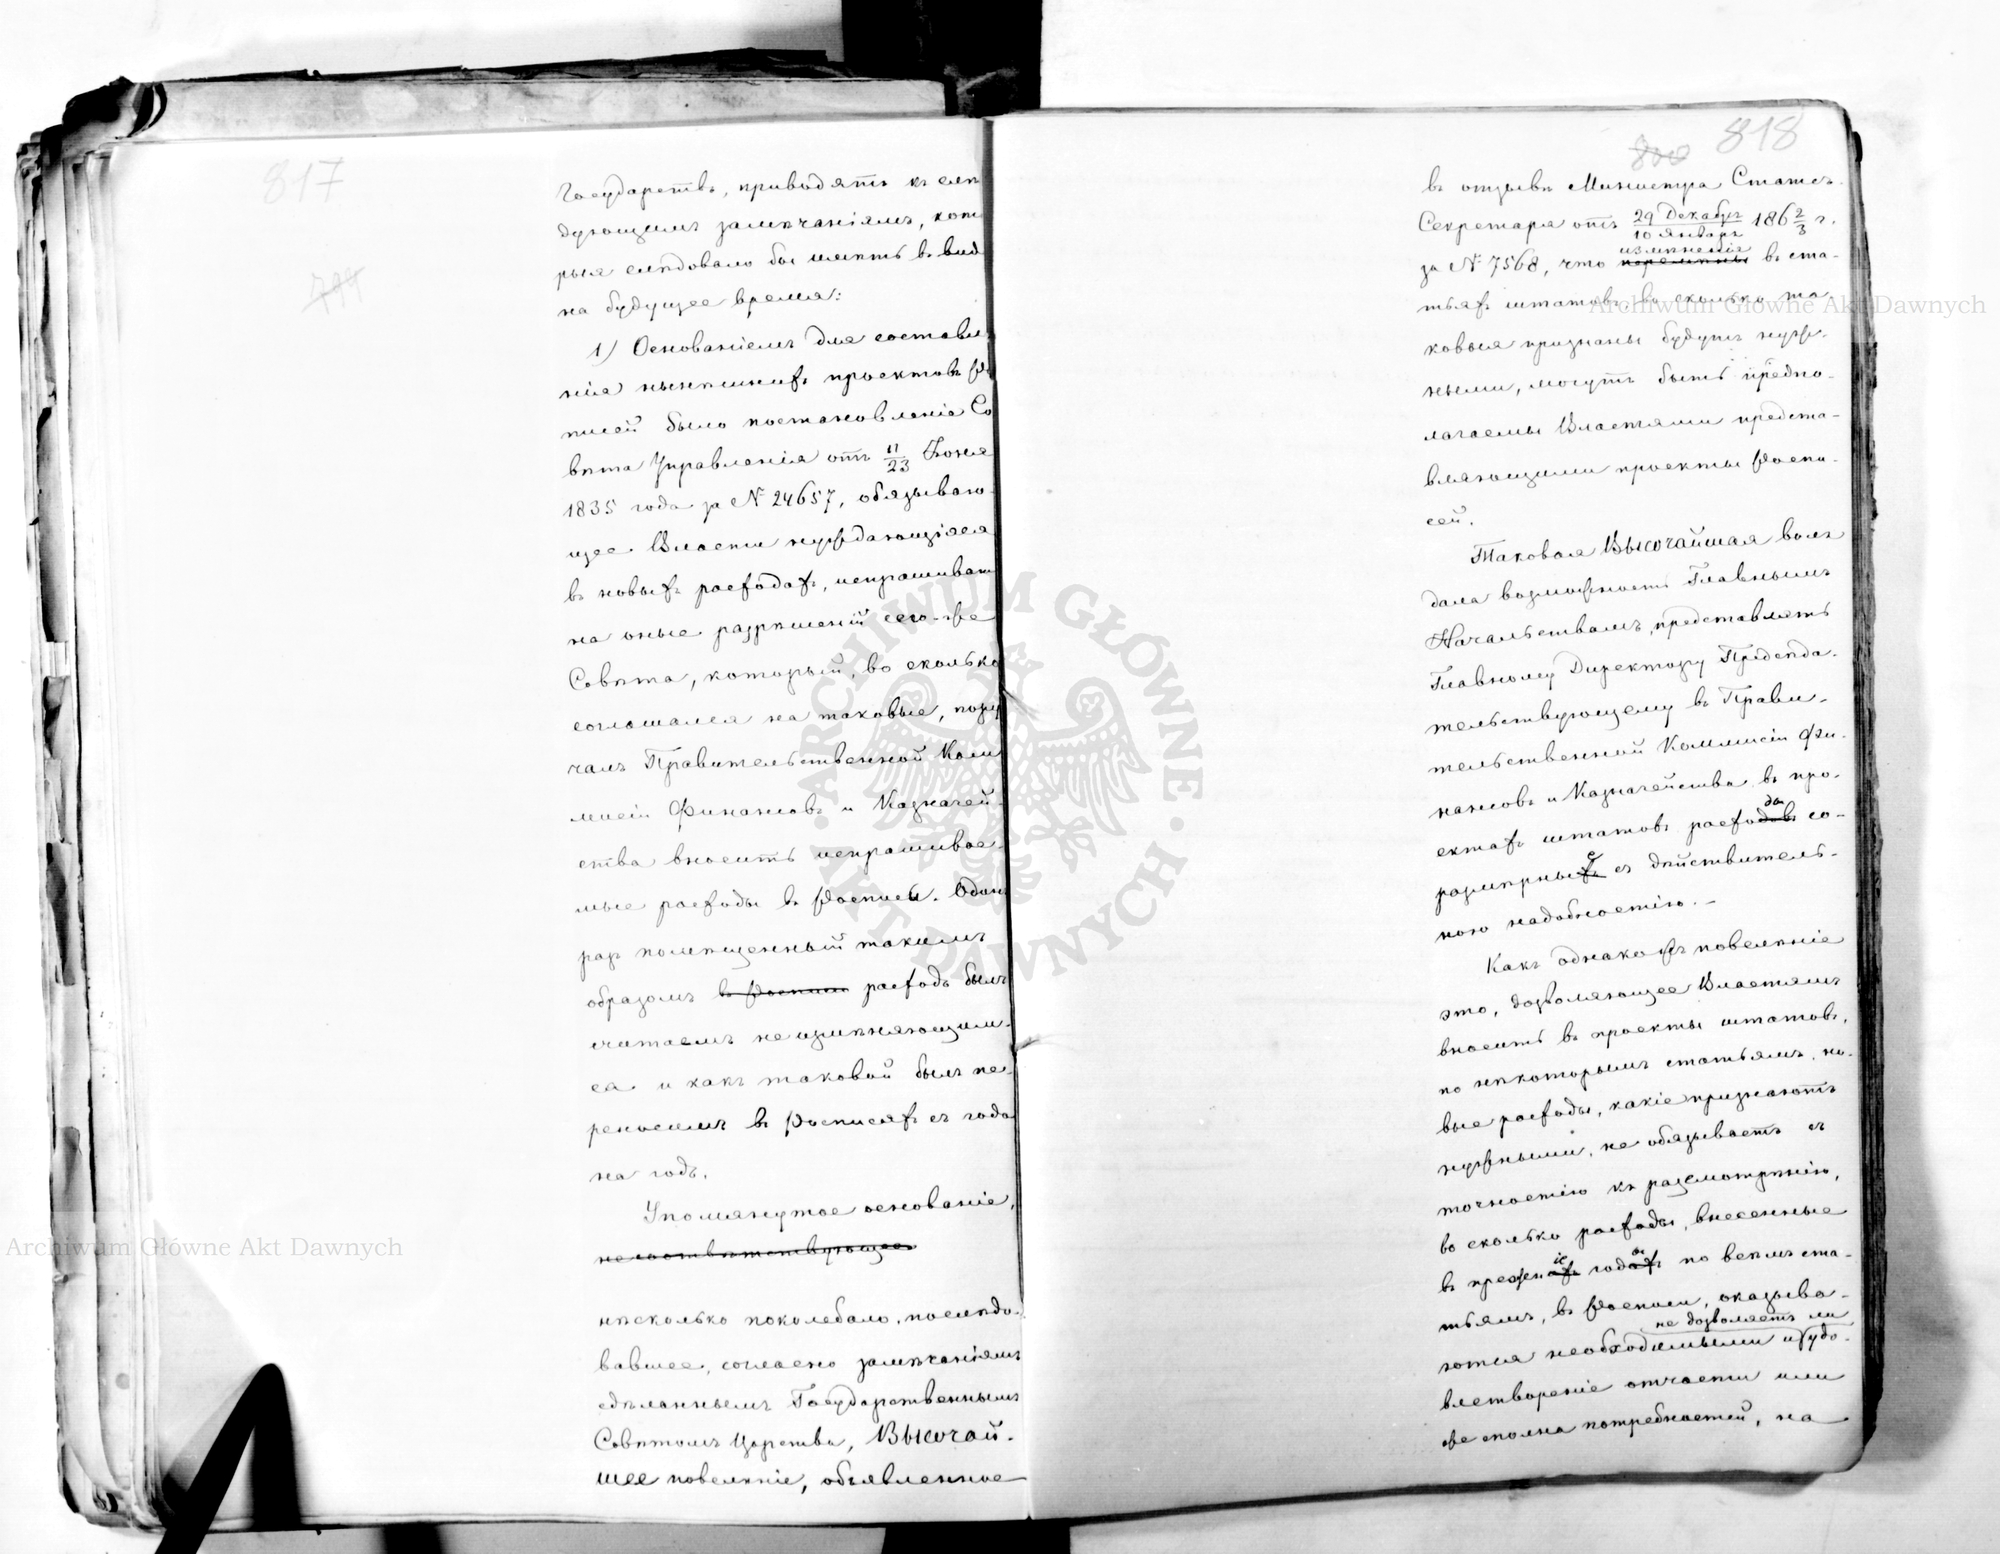 817
799
Государствъ, приводятъ къ слѣ
дующимъ замѣчаніямъ, кото
рыя слѣдовало бы имѣть въ вид
на будущее время:
1) Основаніемъ для составле
нія нынѣшнихъ проектовъ Ро
писей было постановленіе Со
вѣта Управленія отъ 11/23 Іюня
1835 года за № 24657, обязываю-
щее Власти нуждающіяся
въ новыхъ расходахъ, испрашивать
на оные разрѣшеній сего-же
Совѣта, который, во сколько
соглашался на таковые, пору
чалъ Правительственной Ком
мисіи Финансовъ и Казначей-
ства вносить испрашивае-
мые расходы въ Росписи. Одинъ
разъ помѣщенный такимъ
образомъ въ Росписи расходъ былъ
считаемъ неизмѣняющим-
ся и какъ таковой былъ пе-
реносимъ въ Росписяхъ съ года
на годъ.
Упомянутое основаніе,
несоотвѣтствующее
нѣсколько поколебало, послѣдо-
вавшее, согласно замѣчаніямъ
сдѣланнымъ Государственнымъ
Совѣтомъ Царства, Высочай-
шее повелѣніе, объявленное
800 818
въ отзывѣ Министра Статсъ-
Секретаря отъ 29 Декабря/10 Января 1862/3 г.
измѣненія
за № 7568, что перемѣны въ ста-
тьяхъ штатовъ во сколько та-
ковыя признаны будутъ нуж-
ными, могутъ быть предпо-
лагаемы Властями предста-
вляющими проекты Роспи-
сей.
Таковая Высочайшая воля
дала возможность Главнымъ
Начальствамъ, представлять
Главному Директору Предсѣда-
тельствующему въ Прави-
тельственной Коммисіи Фи-
нансовъ и Казначейства въ про-
ектахъ штатовъ расходовъ со-
ды
размѣрныхъ съ дѣйствитель-
е
ною надобностію. —
Какъ однакожъ повелѣніе
это, дозволяющее Властямъ
вносить въ проекты штатовъ,
по нѣкоторымъ статьямъ, но-
вые расходы, какіе признаютъ
нужными, не обязываетъ съ
точностію къ разсмотрѣнію,
во сколько расходы, внесенные
въ прежнихъ годахъ по всѣмъ ста-
іе ы
тьямъ, въ Росписи, оказыва-
не дозволяетъ ли
ются необходимыми и удо-
влетвореніе отчасти или
же сполна потребностей, на
Archiwum Główne Akt Dawnych
Archiwum Główne Akt Dawnych
ARCHIWUM GŁÓWNE · AKT DAWNYCH ·